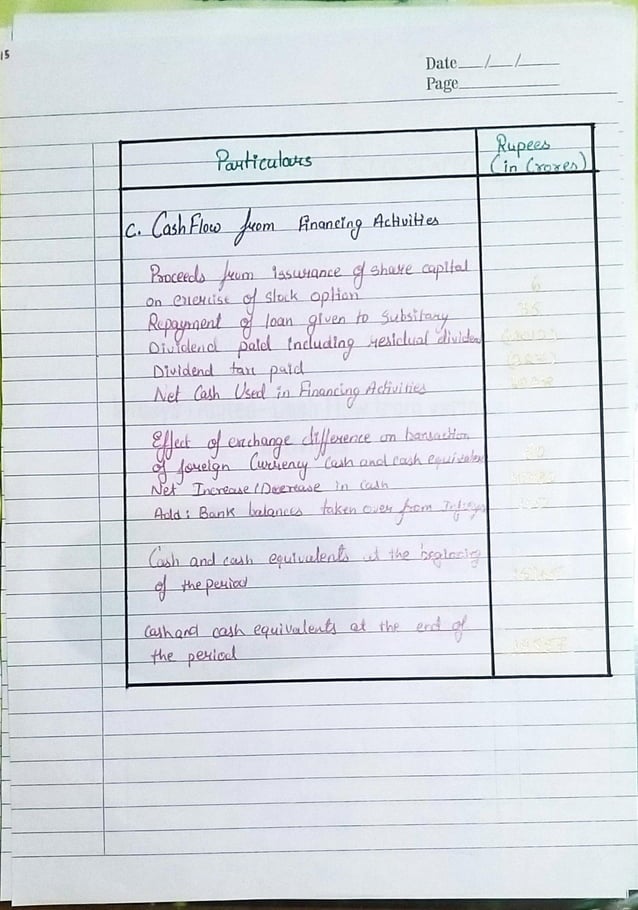 15
Date__/__/____
Page________
Particulars
Rupees
(in Crores)
C. Cash Flow from Financing Activities
Proceeds from Issurance of share capital
on exercise of stock option
6
Repayment of loan given to Subsitary
35
Dividend paid including residual dividen
Dividend tax paid
Net Cash Used in Financing Activities
Effect of exchange difference on transaction
of foreign Currency Cash and cash equivalen
Net Increase/Decrease in Cash
Add: Bank balances taken over from
Cash and cash equivalents at the beginning
of the period
Cash and cash equivalents at the end of
the period